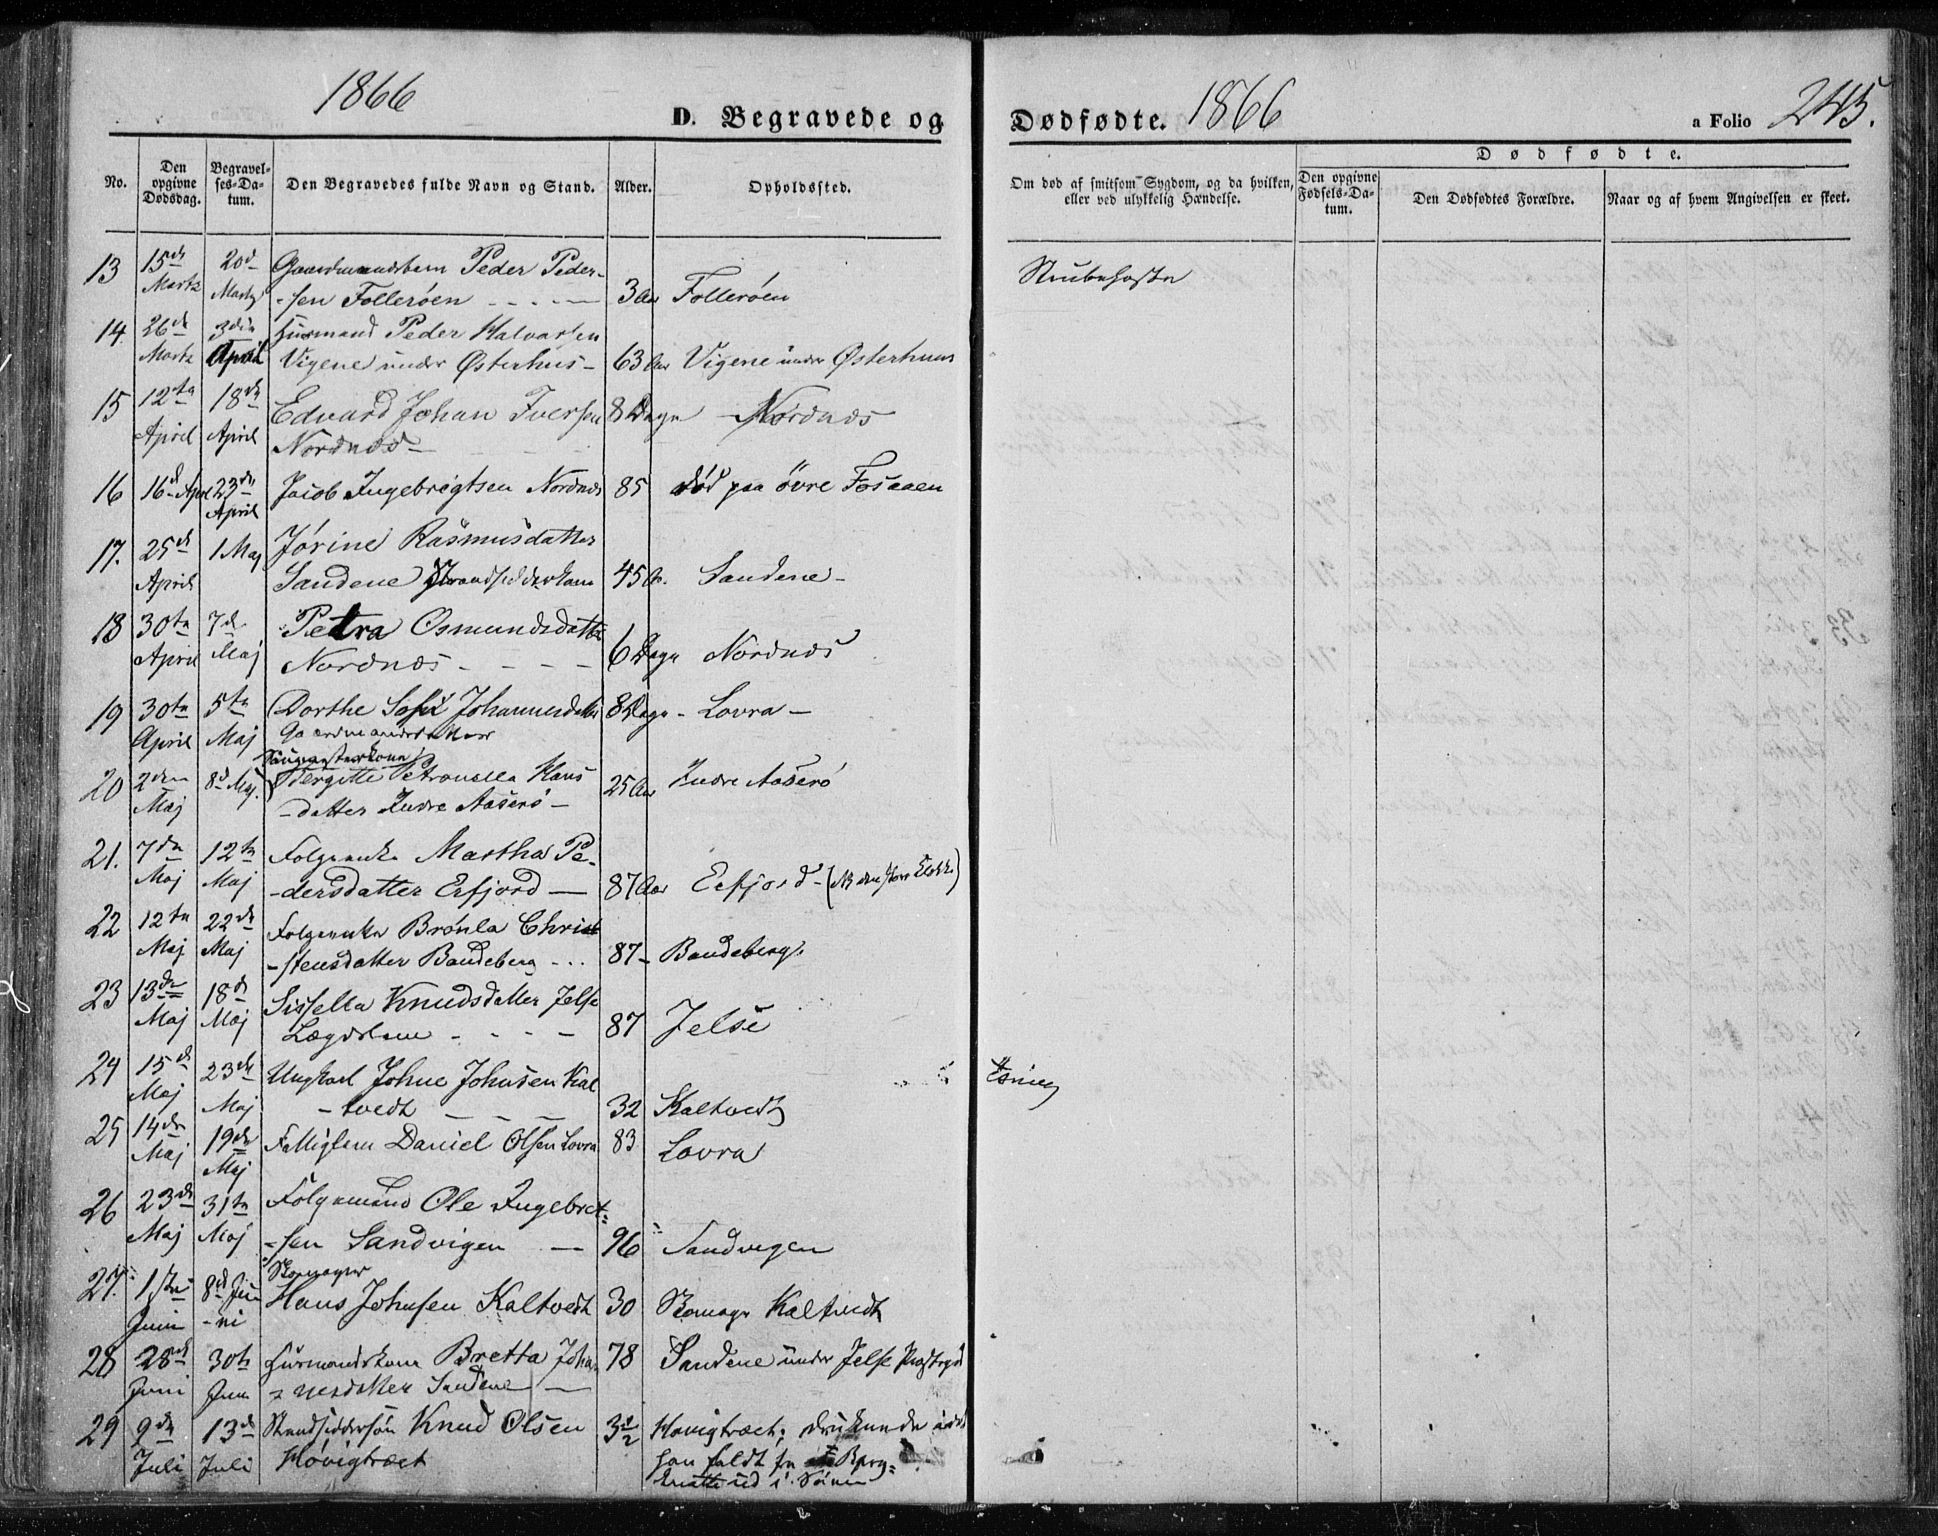 1866
D. Begravede og
Dødfødte. 1866
a Folio 245.
No.
Den opgivne Dødsdag.
Begravel-
ses-Da-
tum.
Den Begravedes fulde Navn og Stand.
Alder.
Opholdssted.
Om død af smitsom Sygdom, og da hvilken,
eller ved ulykkelig Hændelse.
Dødfødte.
Den opgivne
Fødsels-Da-
tum.
Den Dødfødtes Forældre.
Naar og af hvem Angivelsen er skeet.
13 15de 20de Gaardmandsbarn Peder Peder-
Martz Martz -sen Follerøen 3 Aar Follerøen
Strubehoste
14. 26de 3die Huusmand Peder Halvorsen
Martz April Vigene under Østerhus - 63 Aar Vigene under Østerhuus
15 12te 18de Edvard Johan Iversen 8 Dage Nordnæs
April April Nordnæs
16 16de April 23de Jacob Ingebrigtsen Nordnæs 85 død paa øvre Fosaaen
April
17. 25de 1 Maj Jørine Rasmusdatter
April Sandene Strandsidderkone 45 A. Sandene -
18 30te 7de Petra Osmundsdatter
April Maj Nordnæs - - - - 6 Dage Nordnæs
19 30te 5te Dorthe Sofie Johannesdatter 8 Dage - Lovra -
April Maj Gaardmandsdatter
20 2den 8de Maj. Bergitte Petronella Hans 25 Aar Indre Aaserø
Maj -datter Indre Aaserø -
21. 7de 12te Folgeenke Martha Pe-
Maj Maj -dersdatter Erfjord - 87 Aar Erfjord -
22 12te 22de Folgeenke Brønla Christ
Maj Maj -stensdatter Bandeberg - .. 87 - Bandeberg.
23 13de 18de Sissella Knudsdatter Jelse
Maj Maj Lægdslem - - - - 87 Jelse
24 15de 23de Ungkarl Johne Johnsen Kal
Maj Maj -tvedt 32 Kaltvedt
25 14de 19de Fattiglem Daniel Olsen Lovra 83 Lovra
Maj Maj
26 23de 31te Folgemand Ole Ingebret-
Maj Maj -sen Sandvigen - 96 Sandvigen
27. 1ste 8de Juni Skomager
Juni Hans Johnsen Kaltvedt 30 Skomager Kaltvedt
28 28de 30te Huusmandskone Bretta Joha 78 Sandene under Jelse
Juni Juni nesdatter Sandene -
29 9de 13de Strandsiddersøn Knud Olsen 3 1/2 Høvigtræet; druknede
Juli Juli Høvigtræet han faldt fra Berg-
ud i Søen